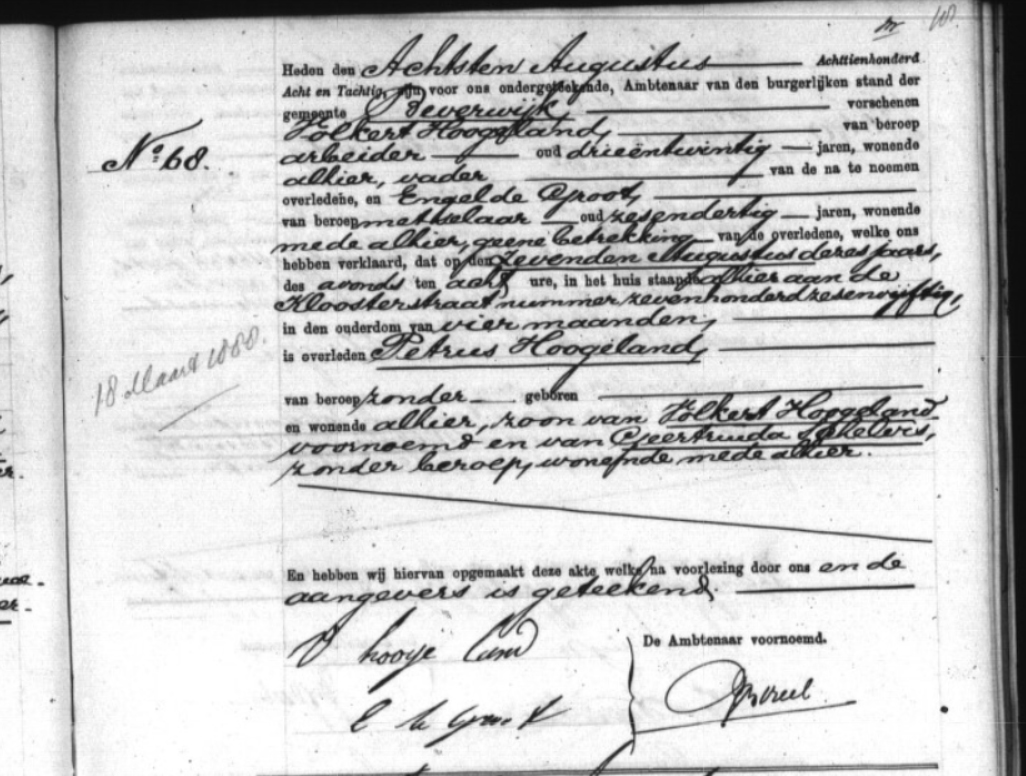 Heden den Achtsten Augustus Achttienhonderd
Acht en Tachtig, zijn voor ons ondergeteekende, Ambtenaar van den burgerlijken stand der
gemeente Beverwijk verschenen
Volkert Hoogeland, van beroep
No. 68.
arbeider oud drieëntwintig jaren, wonende
alhier, vader van de na te noemen
overledene, en Engel de Groot,
van beroep metselaar oud zesendertig jaren, wonende
mede alhier, geene betrekking van de overledene, welke ons
hebben verklaard, dat op den zevenden Augustus dezes jaars,
des avonds ten acht ure, in het huis staande alhier aan de
Kloosterstraat nummer zevenhonderdzesenvijftig,
in den ouderdom van vier maanden,
is overleden Petrus Hoogeland,
18 Maart 1888.
van beroep zonder geboren
en wonende alhier, zoon van Volkert Hoogeland
voornoemd en van Geertruida
zonder beroep, wonende mede alhier.
En hebben wij hiervan opgemaakt deze akte, welke na voorlezing door ons en de
aangevers is geteekend.
De Ambtenaar voornoemd.
V hooge Land
E de Groot